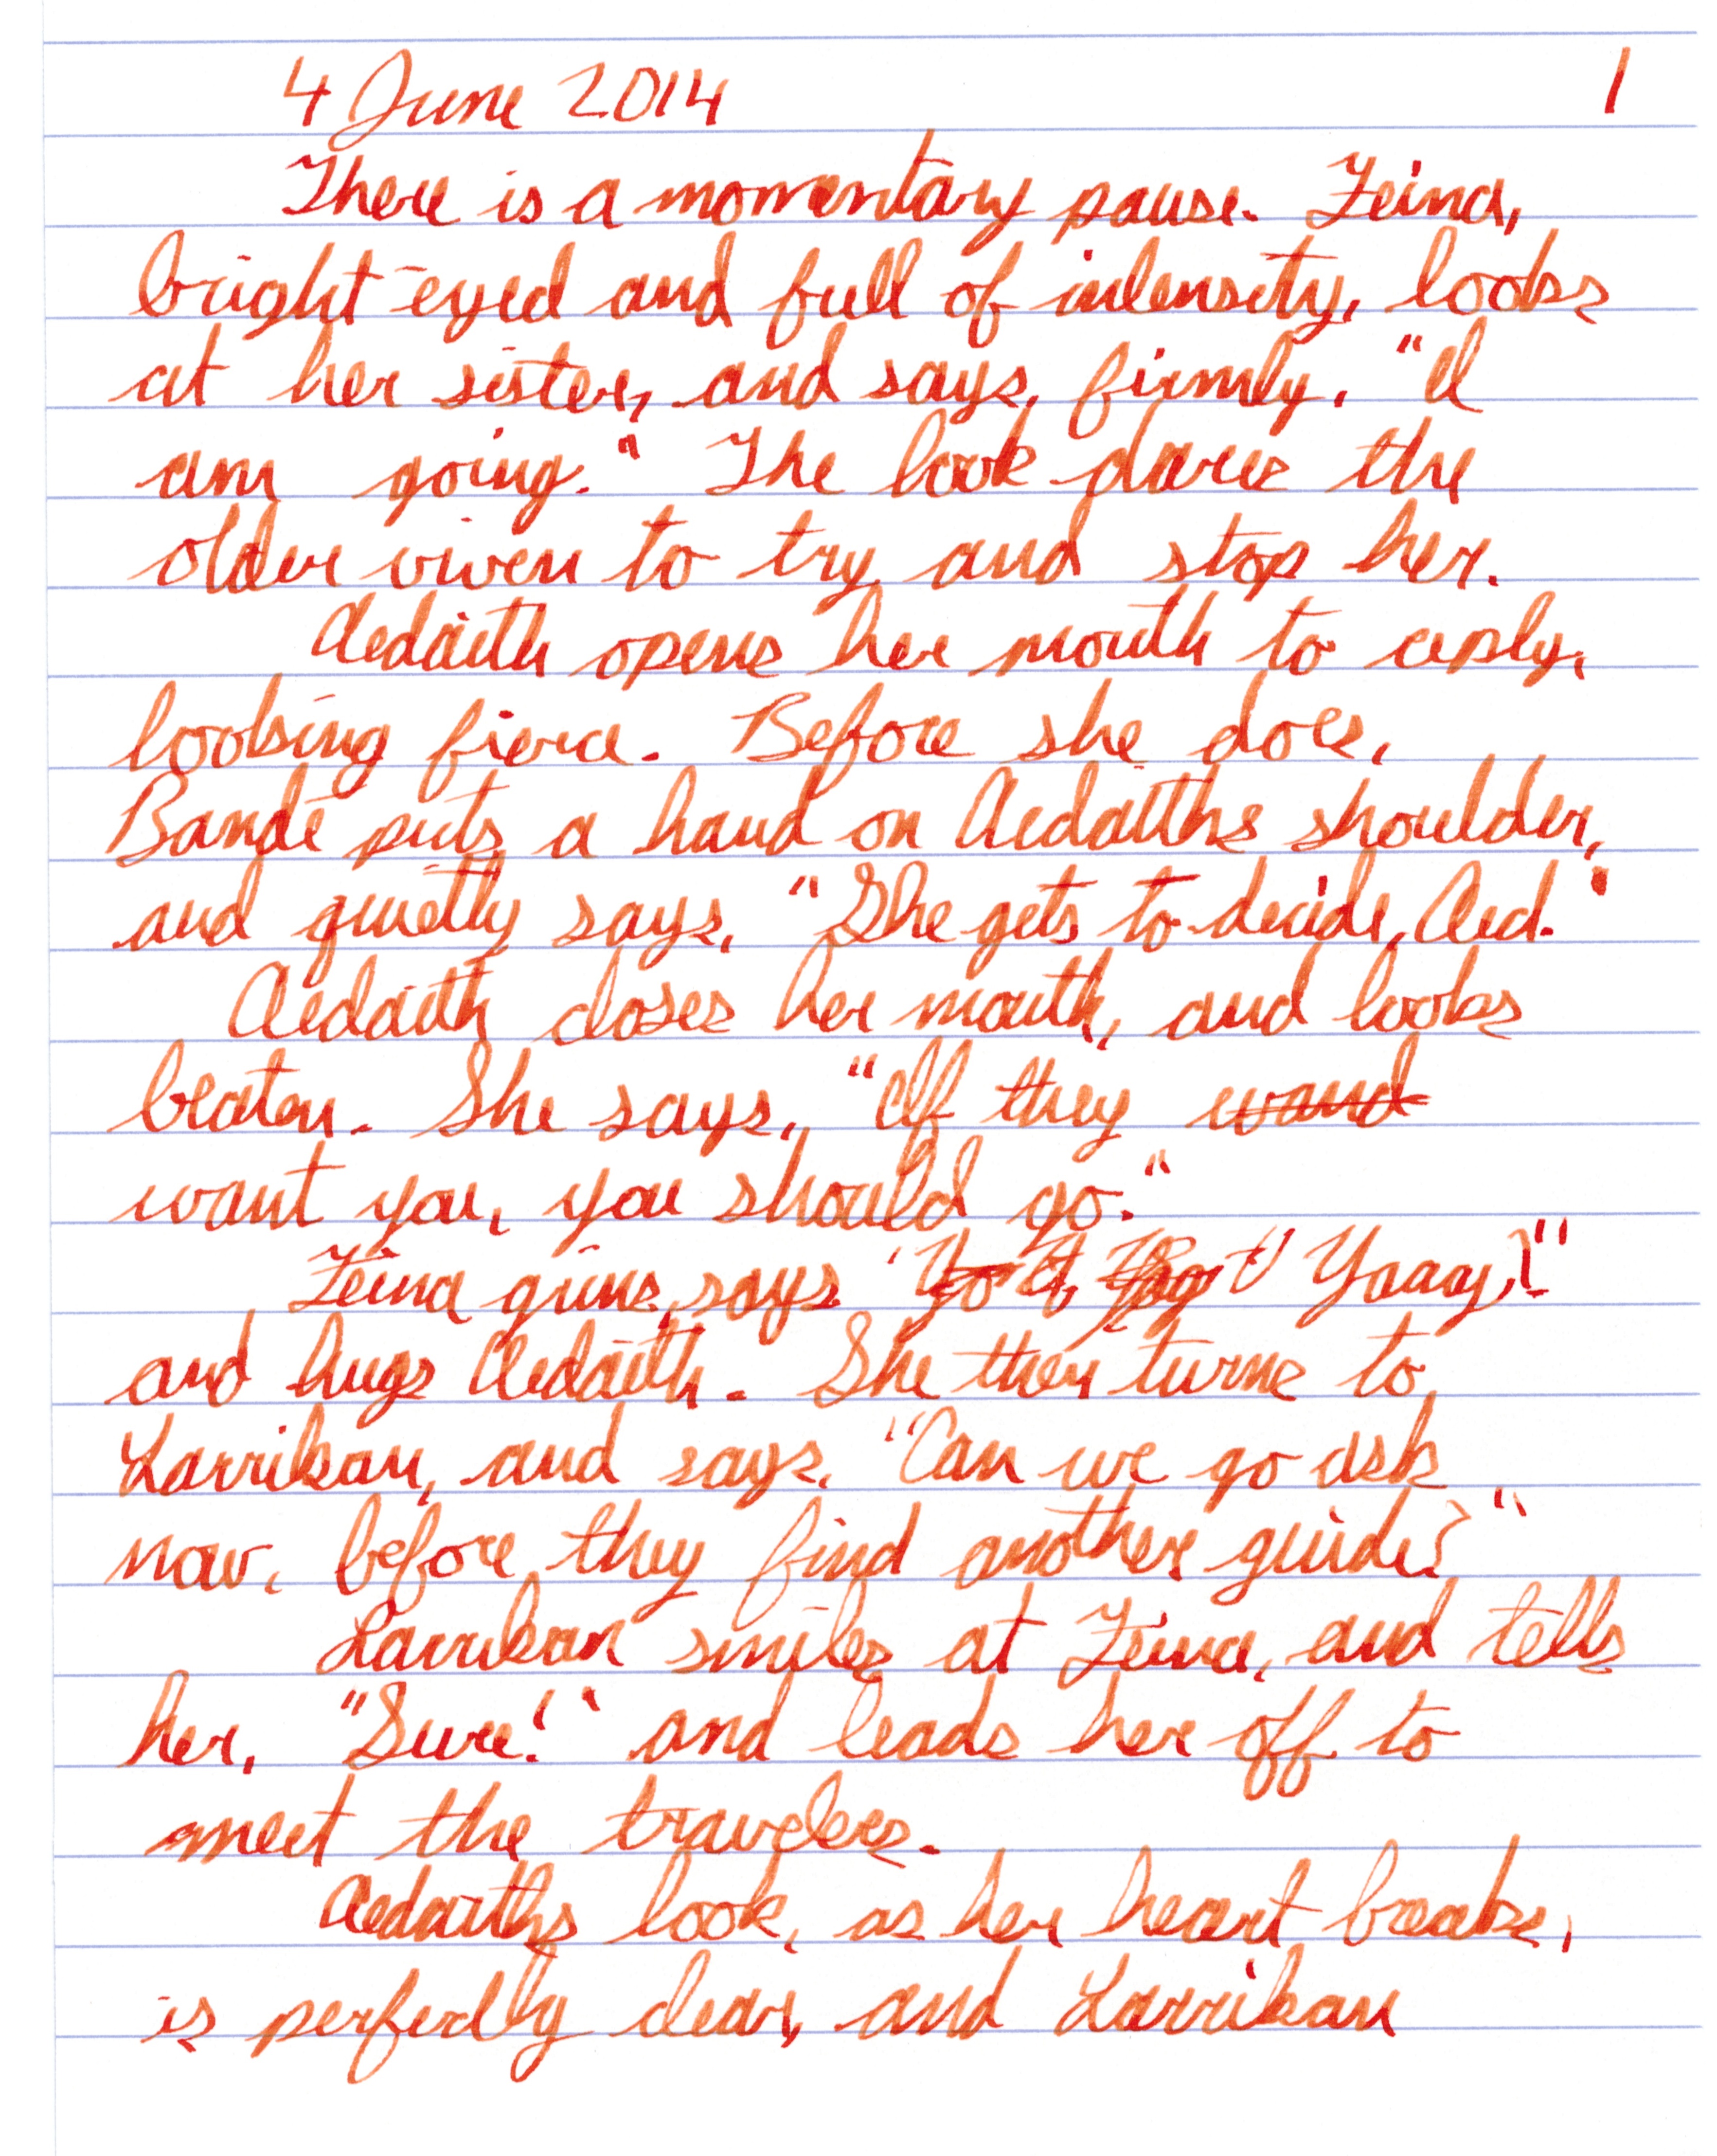 4 June 2014 1
There is a momentary pause. Zeina,
bright-eyed and full of intensity, looks
at her sister, and says, firmly, "I
am going." The look dares the
older viven to try and stop her.
Aedaith opens her mouth to reply,
looking fierce. Before she does,
Bandé puts a hand on Aedaiths shoulder,
and quietly says, "She gets to decide, Aed."
Aedaith closes her mouth, and looks
beaten. She says, "If they wand
want you, you should go."
Zeina grins, says "Yaaay!"
and hugs Aedaith. She then turns to
Larrikan, and says, "Can we go ask
now, before they find another guide?"
Larrikan smiles at Zeina, and tells
her, "Sure!" and leads her off to
meet the travelers.
Aedaiths look, as her heart breaks,
is perfectly clear, and Larrikan